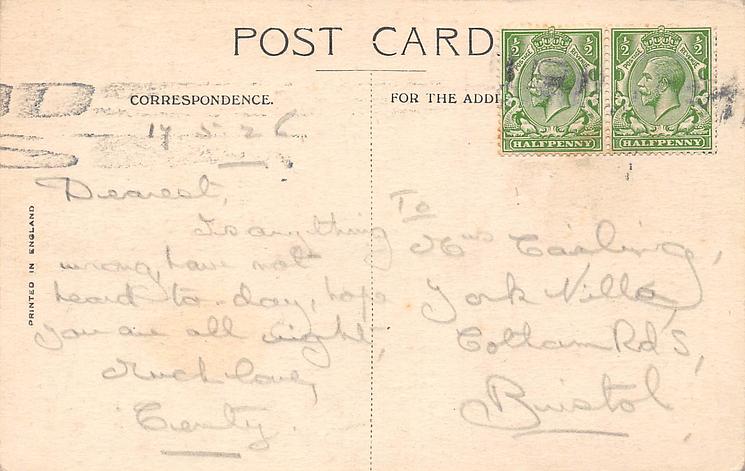 POST CARD.
CORRESPONDENCE.
FOR THE ADD
½ ½
POSTAGE REVENUE
HALFPENNY
½ ½
POSTAGE REVENUE
HALFPENNY
17 5 26
Dearest,
Is anything
wrong, have not
heard to-day, hope
you are all right,
Much love,
PRINTED IN ENGLAND
To
Mrs
York Villa,
Rd S,
Bristol